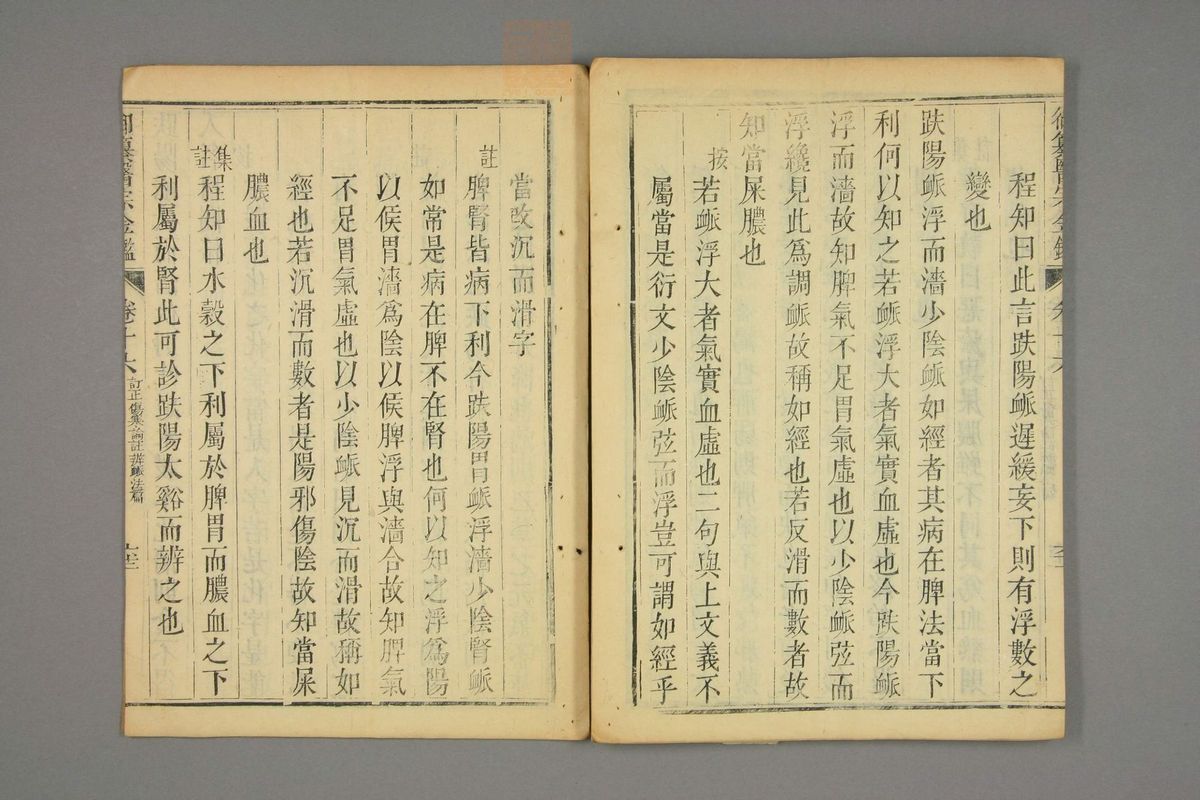 程知曰此言趺陽脈遲緩妄下則有浮數之
變也
趺陽脈浮而濇少陰脈如經者其病在脾法當下
利何以知之若脈浮大者氣實血虛也今趺陽脈
浮而濇故知脾氣不足胃氣虛也以少陰脈弦而
浮纔見此爲調脈故稱如經也若反滑而數者故
知當屎膿也
按若脈浮大者氣實血虛也二句與上文義不
屬當是衍文少陰脈弦而浮豈可謂如經乎
當改沉而滑字
註脾腎皆病下利今趺陽胃脈浮濇少陰腎脈
如常是病在脾不在腎也何以知之浮爲陽
以候胃濇爲陰以候脾浮與濇合故知脾氣
不足胃氣虛也以少陰脈見沉而滑故稱如
經也若沉滑而數者是陽邪傷陰故知當屎
膿血也
集註程知曰水穀之下利屬於脾胃而膿血之下
利屬於腎此可診趺陽太谿而辨之也
御纂醫宗金鑑 卷十六 訂正傷寒論註辨脈法篇